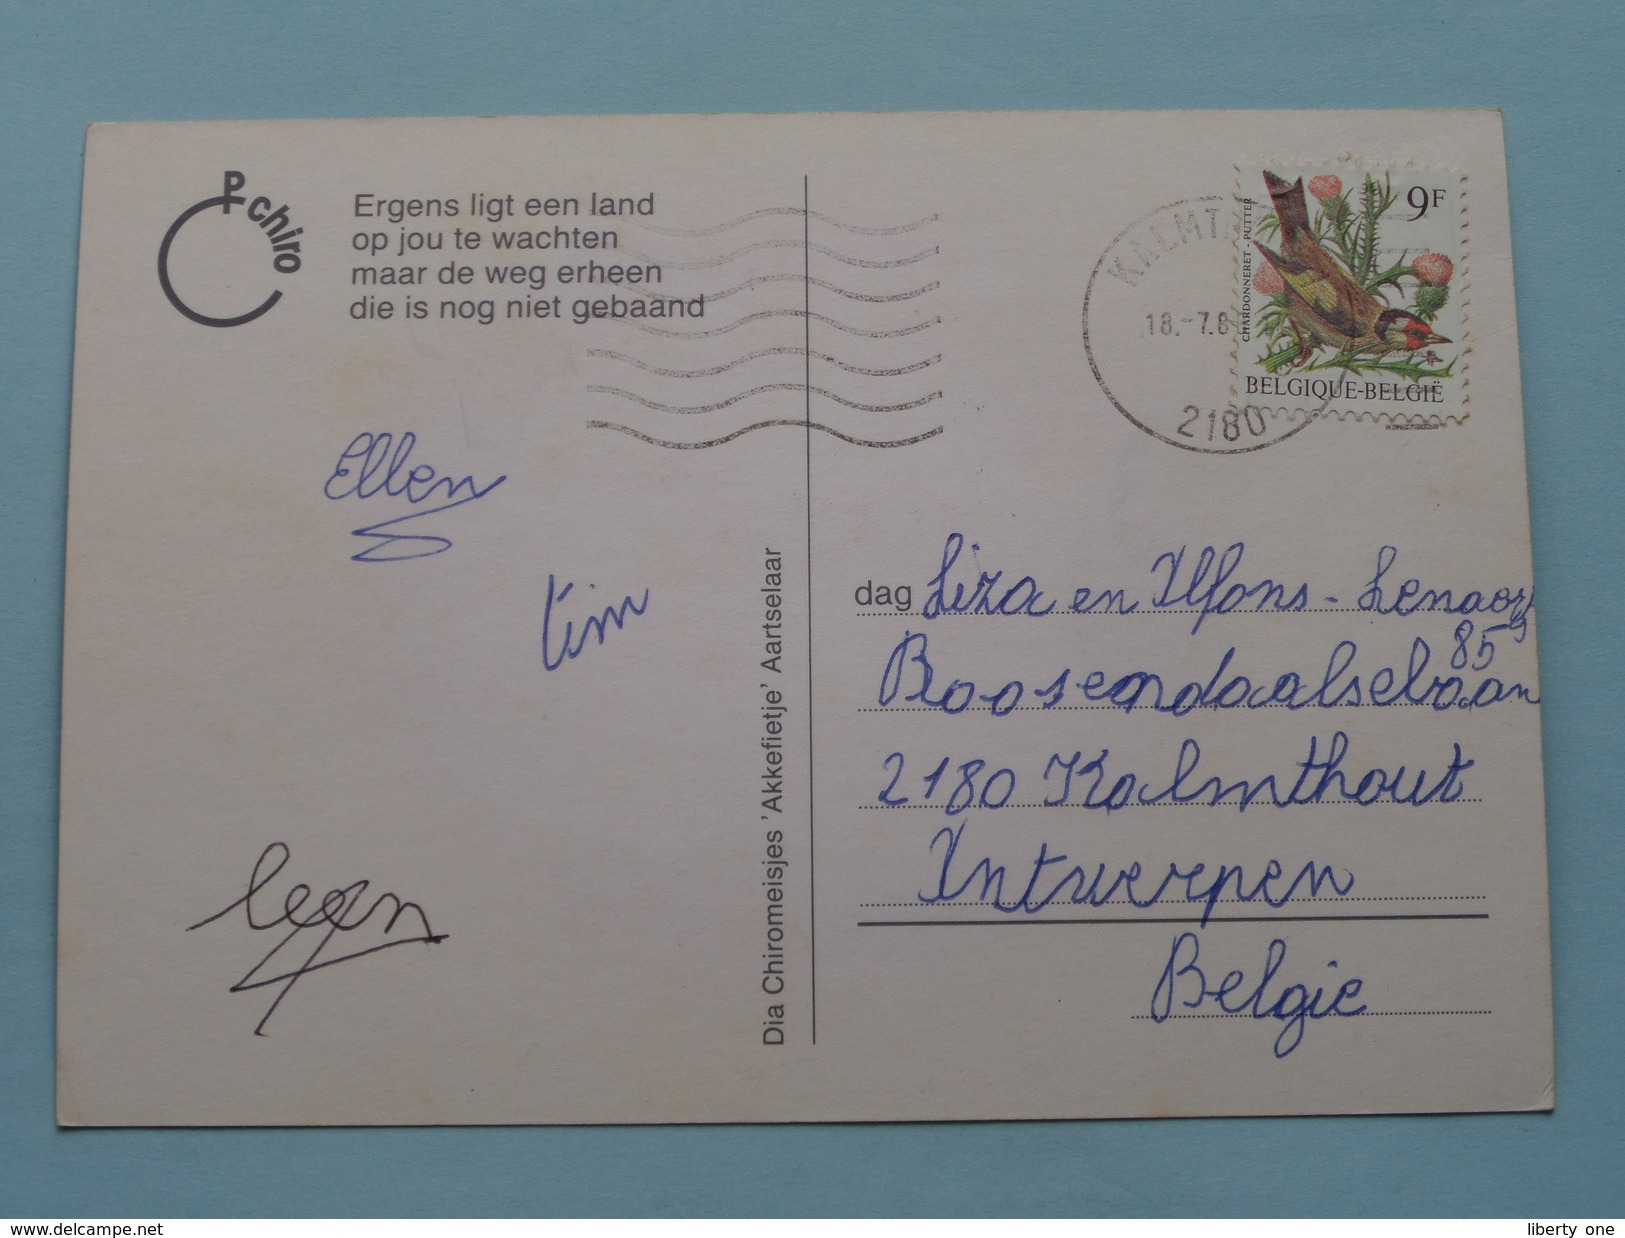 chiro
Ergens ligt een land
op jou te wachten
maar de weg erheen
die is nog niet gebaand
Ellen
Kim
leen
Dia Chiromeisjes 'Akkefietje' Aartselaar
KALMTH
18.-7.8
2180
9F
CHARDONNERET - PUTTER
BELGIQUE-BELGIË
dag Liza en Alfons - Lenaerts
85
Roosendaalsebaan
2180 Kalmthout
Antwerpen
Belgie
www.delcampe.net
liberty_one